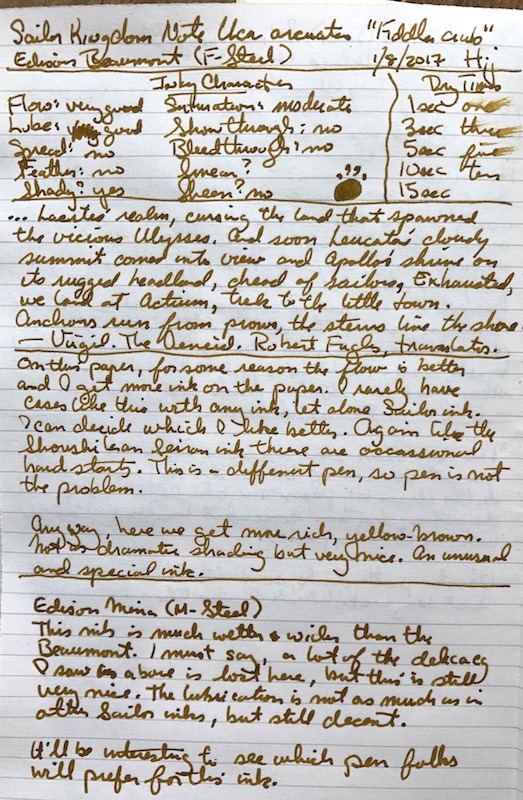 Sailor Kingdom Note Uca arcuata "Fiddler crab"
Edison Beaumont (F-Steel) 1/8/2017 Hij
Inky Characters Dry Times
Flow: very good Saturation: moderate 1sec one
Lube: good Show through: no 3sec three
Spread: no Bleedthrough: no 5sec five
Feather: no Smear? 10sec ten
Shady? yes Sheen? no 15sec
... Laertes' realm, cursing the land that spawned
the vicious Ulysses. And soon Leucata's cloudy
summit comes into view and Apollo's shrine on
its rugged headland, dread of sailors, Exhausted,
we land at Actium, trek to the little town.
Anchors run from prows, the sterns line the shore.
— Virgil. The Aeneid. Robert Fagles, translator.
On this paper, for some reason the flow is better
and I get more ink on the paper. I rarely have
cases like this with any ink, let alone Sailor ink.
I can decide which I like better. Again like the
Shoushikan Seiran ink there are occassional
hard starts. This is a different pen, so pen is not
the problem.
Any way, here we get more rich, yellow-brown.
Not as dramatic shading but very nice. An unusual
and special ink.
Edison Mina (M-Steel)
This nib is much wetter & wider than the
Beaumont. I must say, a lot of the delicacy
I saw above is lost here, but this is still
very nice. The lubrication is not as much as in
other Sailor inks, but still decent.
It'll be interesting to see which pen folks
will prefer for this ink.